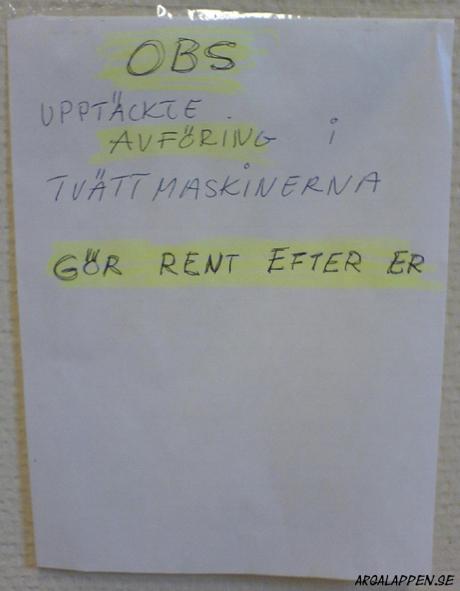 OBS
UPPTÄCKTE
AVFÖRING i
TVÄTTMASKINERNA
GÖR RENT EFTER ER
ARGALAPPEN.SE